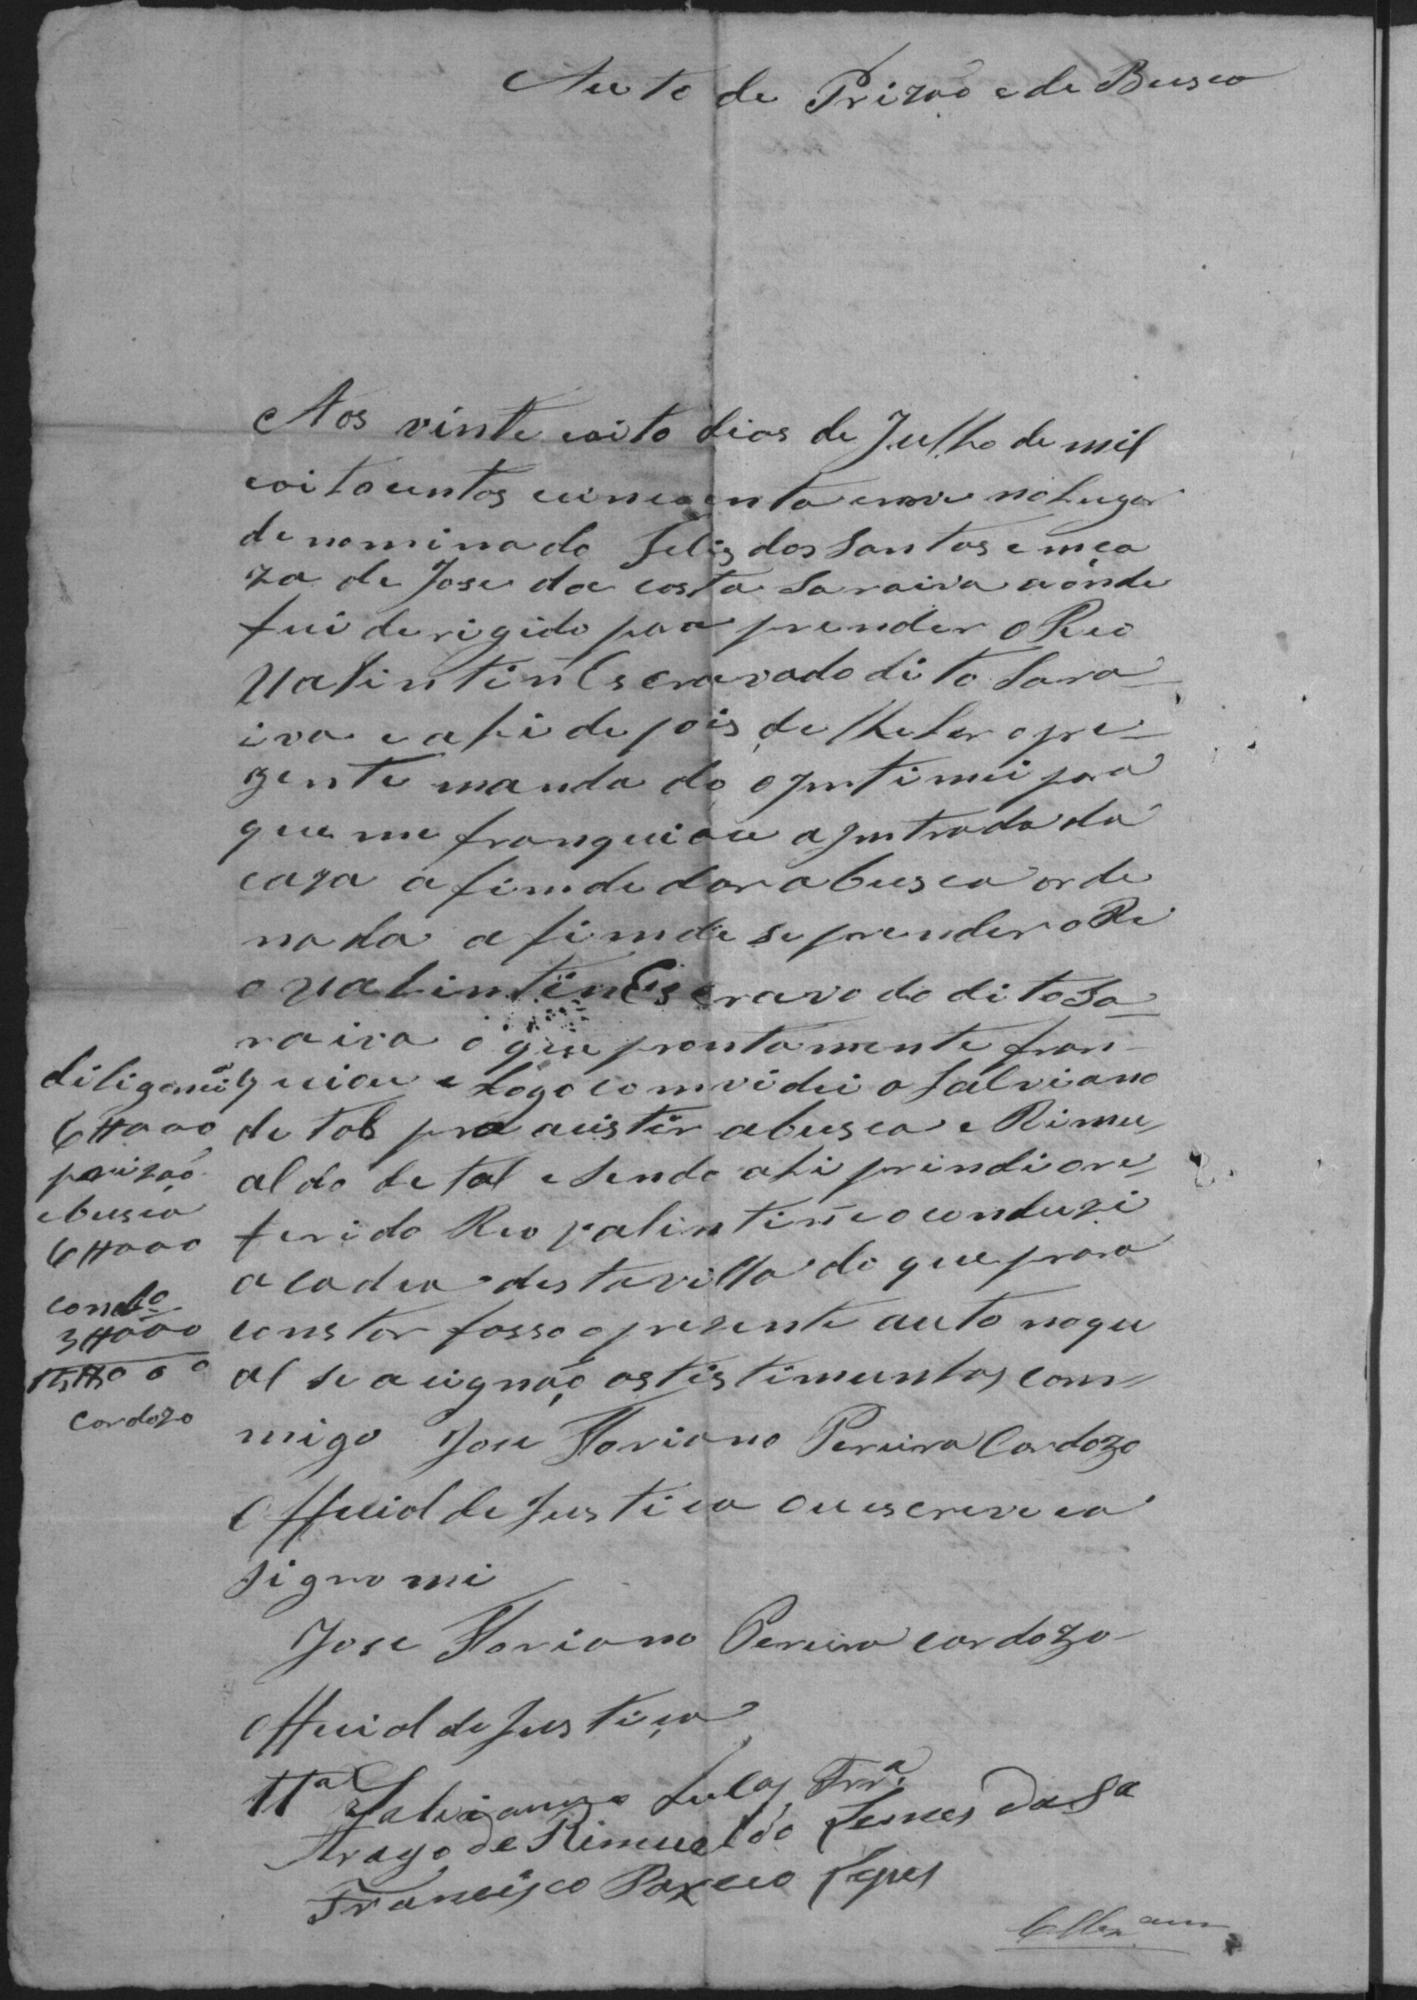 Auto de Prizão e de Busca
Aos vinte eoito dias de Julho de mil
eoitocentos cincoenta enove no Lugar
denominado Felis dos Santos em ca
za de Jose da costa Saraiva aonde
fui derigido para prender o Reo
Valintin Escravo do dito Sara
iva e ahi depois de lhe Ler opre
zente mandado o Jntimei para
que me franquiace a Jntrada da
caza afim de dar abusca orde
nada afim de se prender o Re
o Valintin Escravo do dito Sa
raiva o que prontamente fran
quiou e Logo comvidei o Salviano
de tal pra acistir abusca e Rimu
aldo de tal e Sendo ahi prindi ore
ferido Reo valintin eo conduzi
a cadea desta villa do que para
constar fasso o prezente auto no qu
al se acignão as tistimunhas com
migo Jose Floriano Pereira Cardozo
Official de Justica ou escrevi ea
signo mi
diligencia
6#000
prizão
ebusca
6#000
condão
3#000
15#000
Cardozo
Jose Floriano Pereira cardozo
Official de Justiça
Ttª Salviano Lucas Frrª
Arago de Rimualdo Lemes da Sa
Francisco Paxeco Lopes